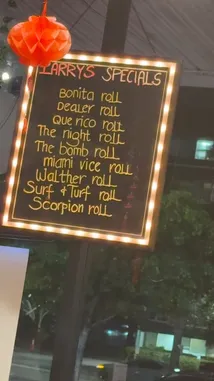 LARRYS SPECIALS
Bonita roll
Dealer roll
Que rico roll
The night roll
The bomb roll
miami vice roll
Walther roll
Surf & Turf roll
Scorpion roll